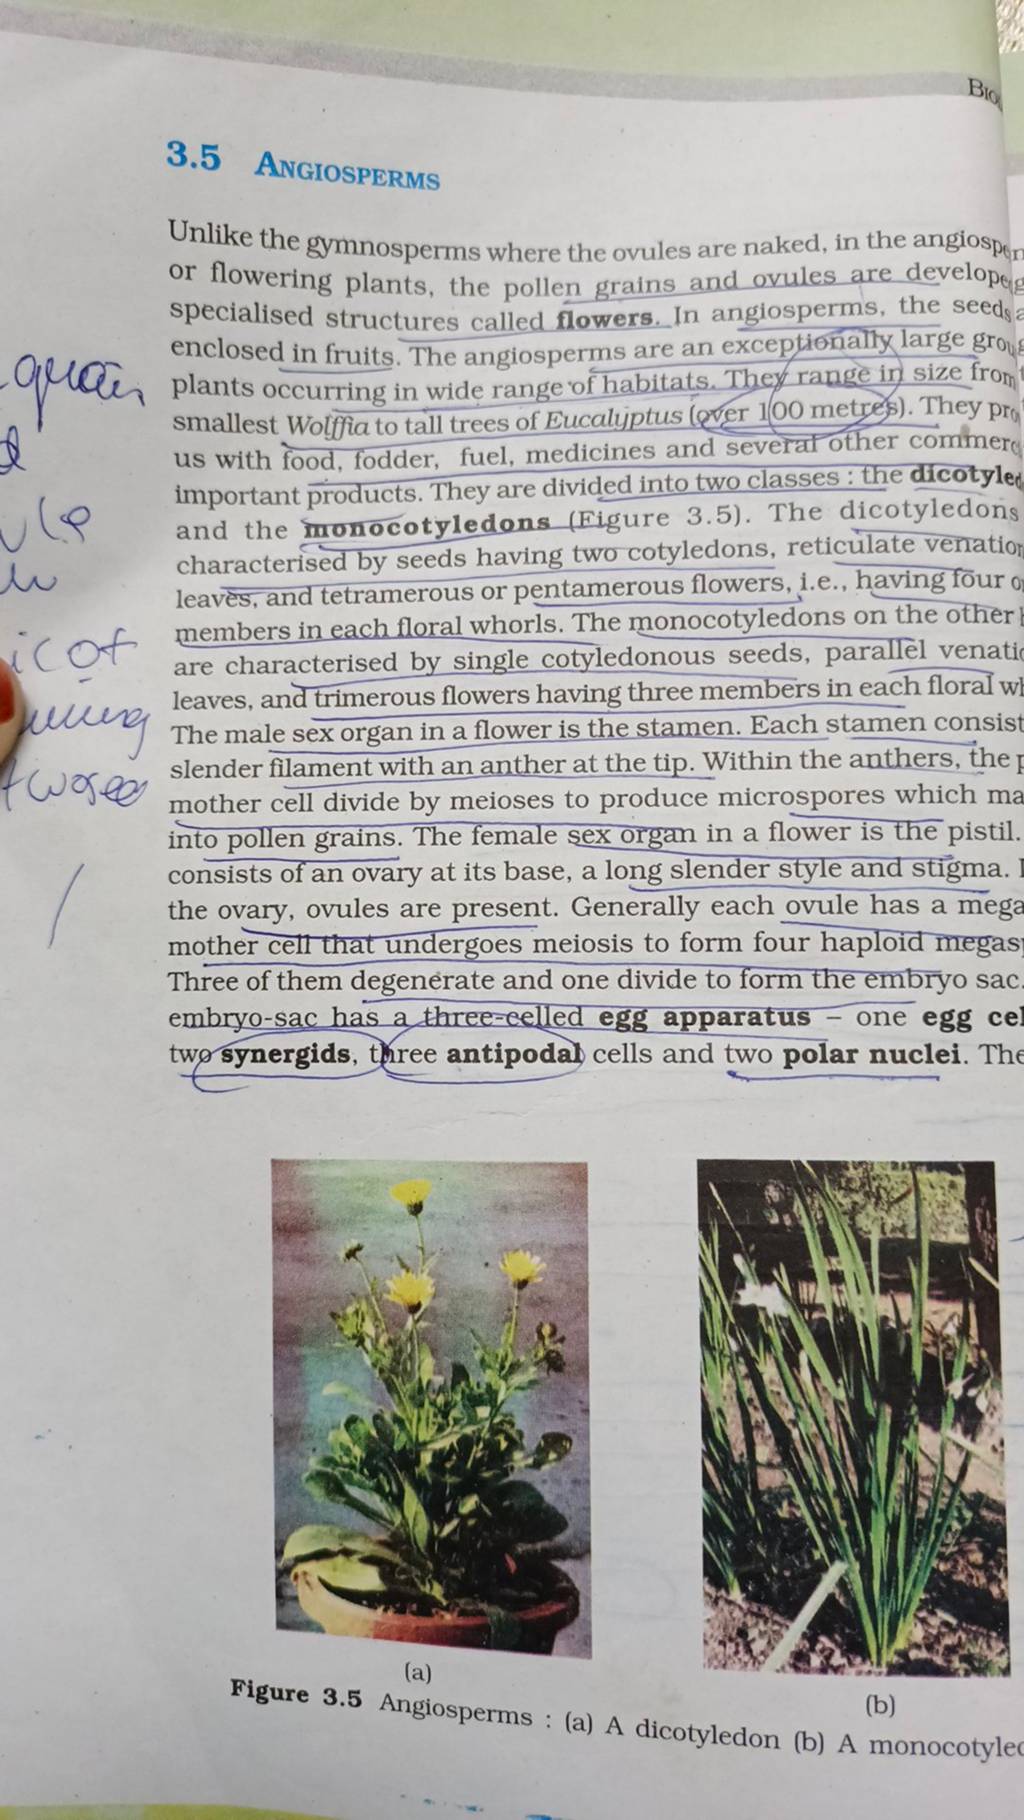 Bio
3.5 ANGIOSPERMS
Unlike the gymnosperms where the ovules are naked, in the angiosper
or flowering plants, the pollen grains and ovules are develope
specialised structures called flowers. In angiosperms, the seeds
enclosed in fruits. The angiosperms are an exceptionally large grou
plants occurring in wide range of habitats. They range in size from
smallest Wolffia to tall trees of Eucalyptus (over 100 metres). They pro
us with food, fodder, fuel, medicines and several other commerc
important products. They are divided into two classes : the dicotyled
and the monocotyledons (Figure 3.5). The dicotyledons
characterised by seeds having two cotyledons, reticulate venation
leaves, and tetramerous or pentamerous flowers, i.e., having four o
members in each floral whorls. The monocotyledons on the other
are characterised by single cotyledonous seeds, parallel venatio
leaves, and trimerous flowers having three members in each floral wh
The male sex organ in a flower is the stamen. Each stamen consist
slender filament with an anther at the tip. Within the anthers, the p
mother cell divide by meioses to produce microspores which ma
into pollen grains. The female sex organ in a flower is the pistil.
consists of an ovary at its base, a long slender style and stigma. I
the ovary, ovules are present. Generally each ovule has a mega
mother cell that undergoes meiosis to form four haploid megasp
Three of them degenerate and one divide to form the embryo sac.
embryo-sac has a three-celled egg apparatus – one egg cel
two synergids, three antipodal cells and two polar nuclei. The
icot
(a)
(b)
Figure 3.5 Angiosperms : (a) A dicotyledon (b) A monocotyled